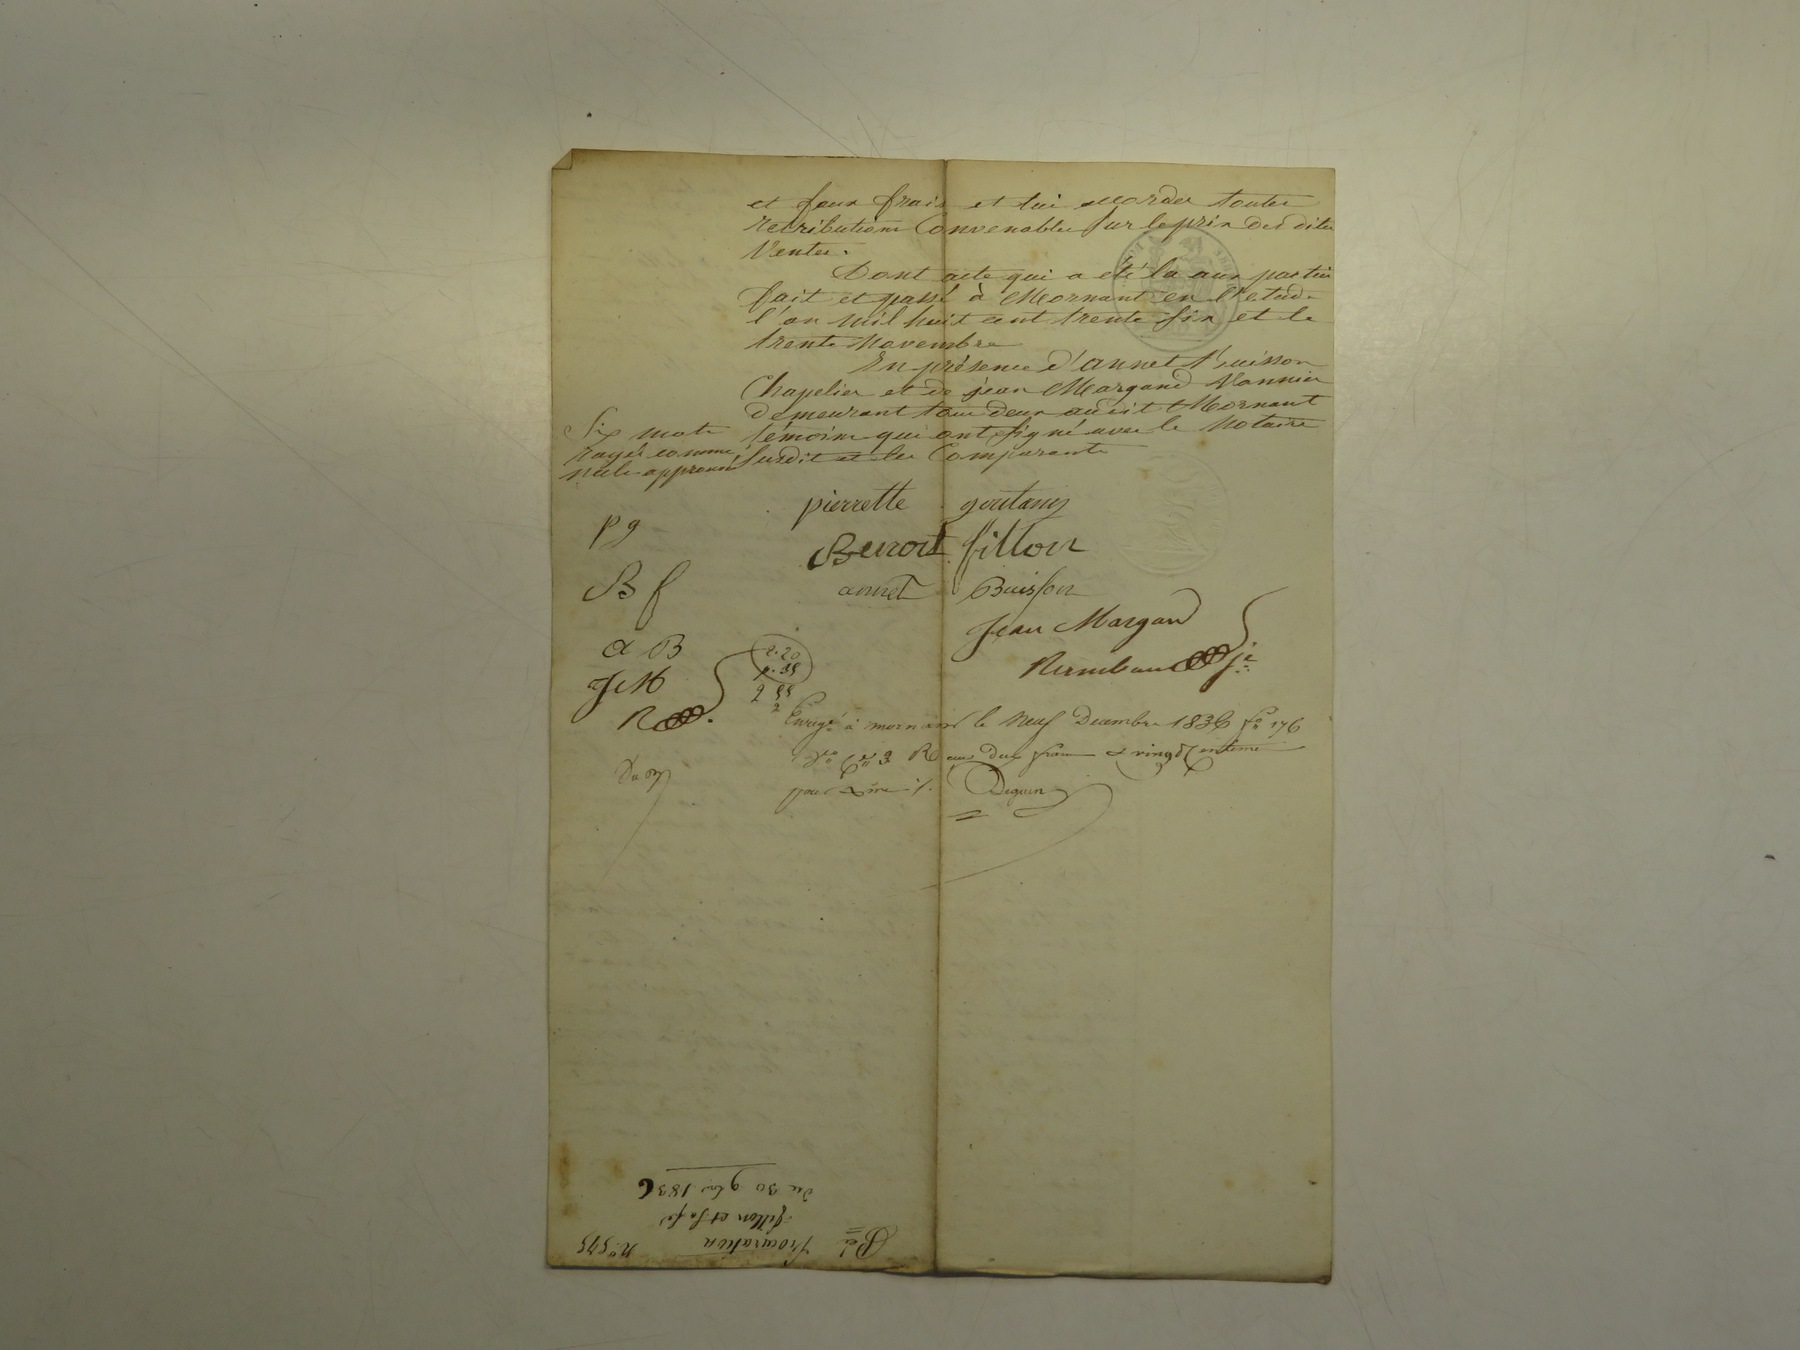 et faux frais et lui accorder toutes
retributions Convenables sur le prix des dites
Ventes.
Dont acte qui a été lu aux parties
fait et passé à Mornant en l'etude
l'an mil huit cent trente six et le
trente Novembre
En présence d'annet Buisson
Chapelier et de jean Margand Vannier
demeurant tous deux audit Mornant
témoins qui ont signé avec le Notaire
susdit et les Comparants
Six mots
rayés comme
nuls approuvés
pierrette goutany
Benoit fillon
annet Buisson
Jean Margand
p g
B f
a B
J M
R
2.20
2
Enregé à mornant le Neuf Decembre 1836 fo 176
Vo Ce 3 Reçu deux francs & vingt Centimes
pour
N° 575
Procuration
fillon et sa fe
du 30 9bre 1836